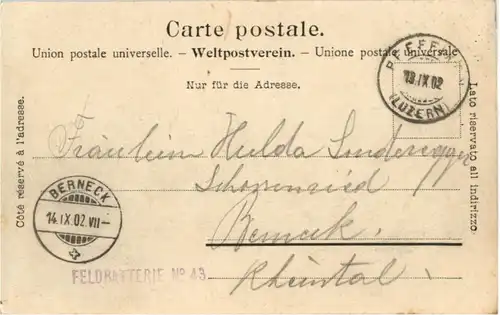 Carte postale.
Union postale universelle. – Weltpostverein. – Unione postale universale
Nur für die Adresse.
Côté réservé à l'adresse.
Lato riservato all indirizzo.
13.IX.02
(LUZERN)
Fräulein Hulda Sonderegger
Berneck
Rheintal.
BERNECK
14.IX.02.VII–
FELDBATTERIE Nº 43